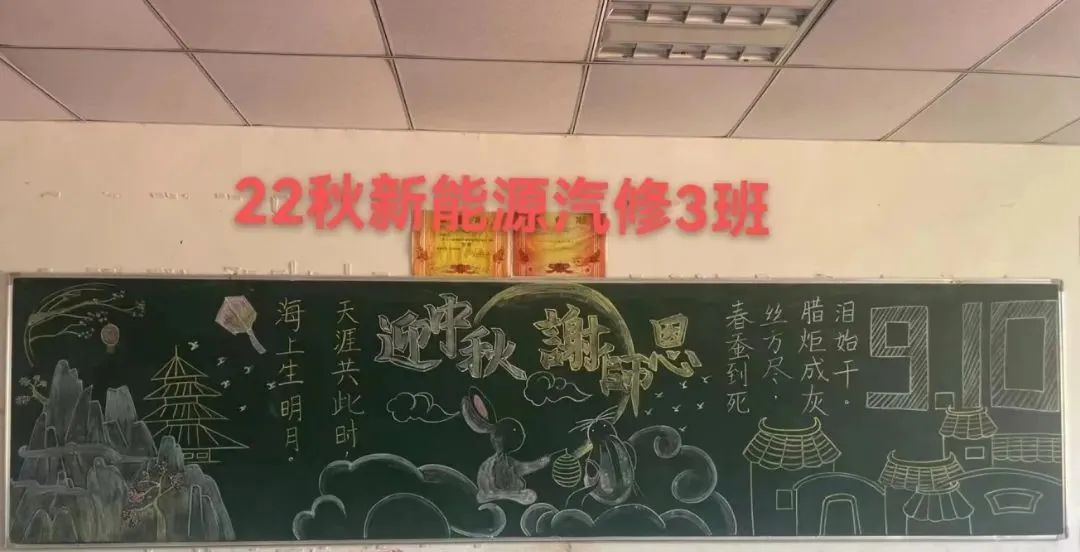 22秋新能源汽修3班
海上生明月。
天涯共此时,
迎中秋 謝師恩
春蚕到死
丝方尽,
腊炬成灰
泪始干。
9.10